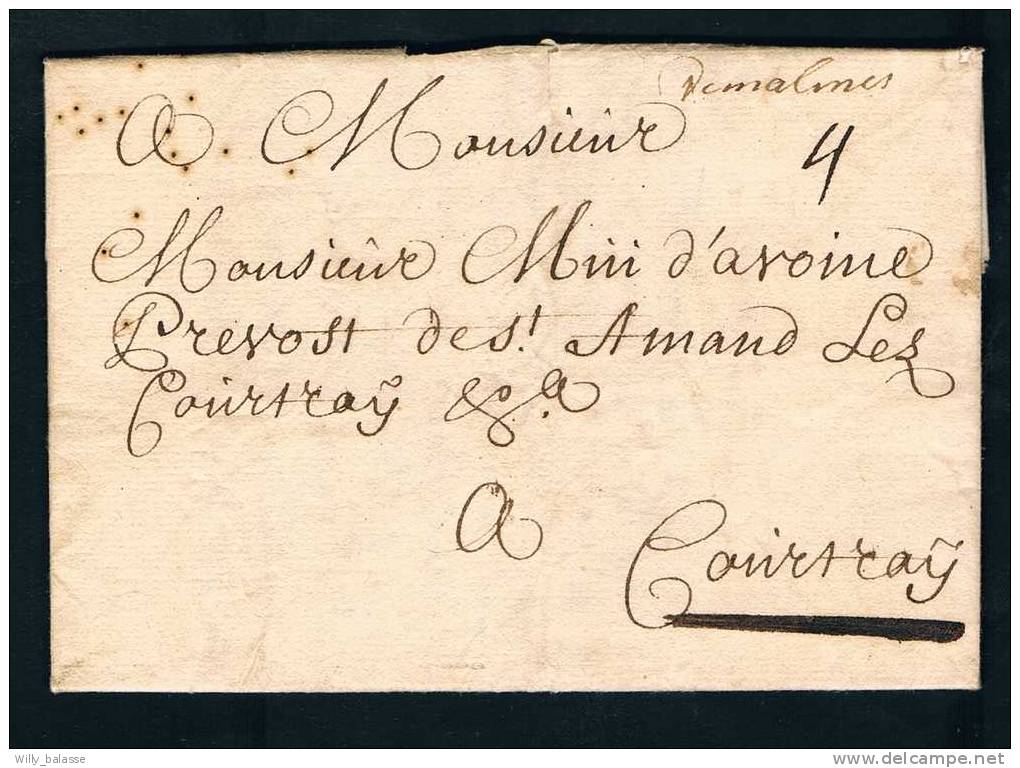 De malines
A Monsieur
4
Monsieur Miii d'avoine
Prevost de St. Amand Lez
Courtraÿ &c.a
A
Courtraÿ
Willy_balasse
delcampe.net